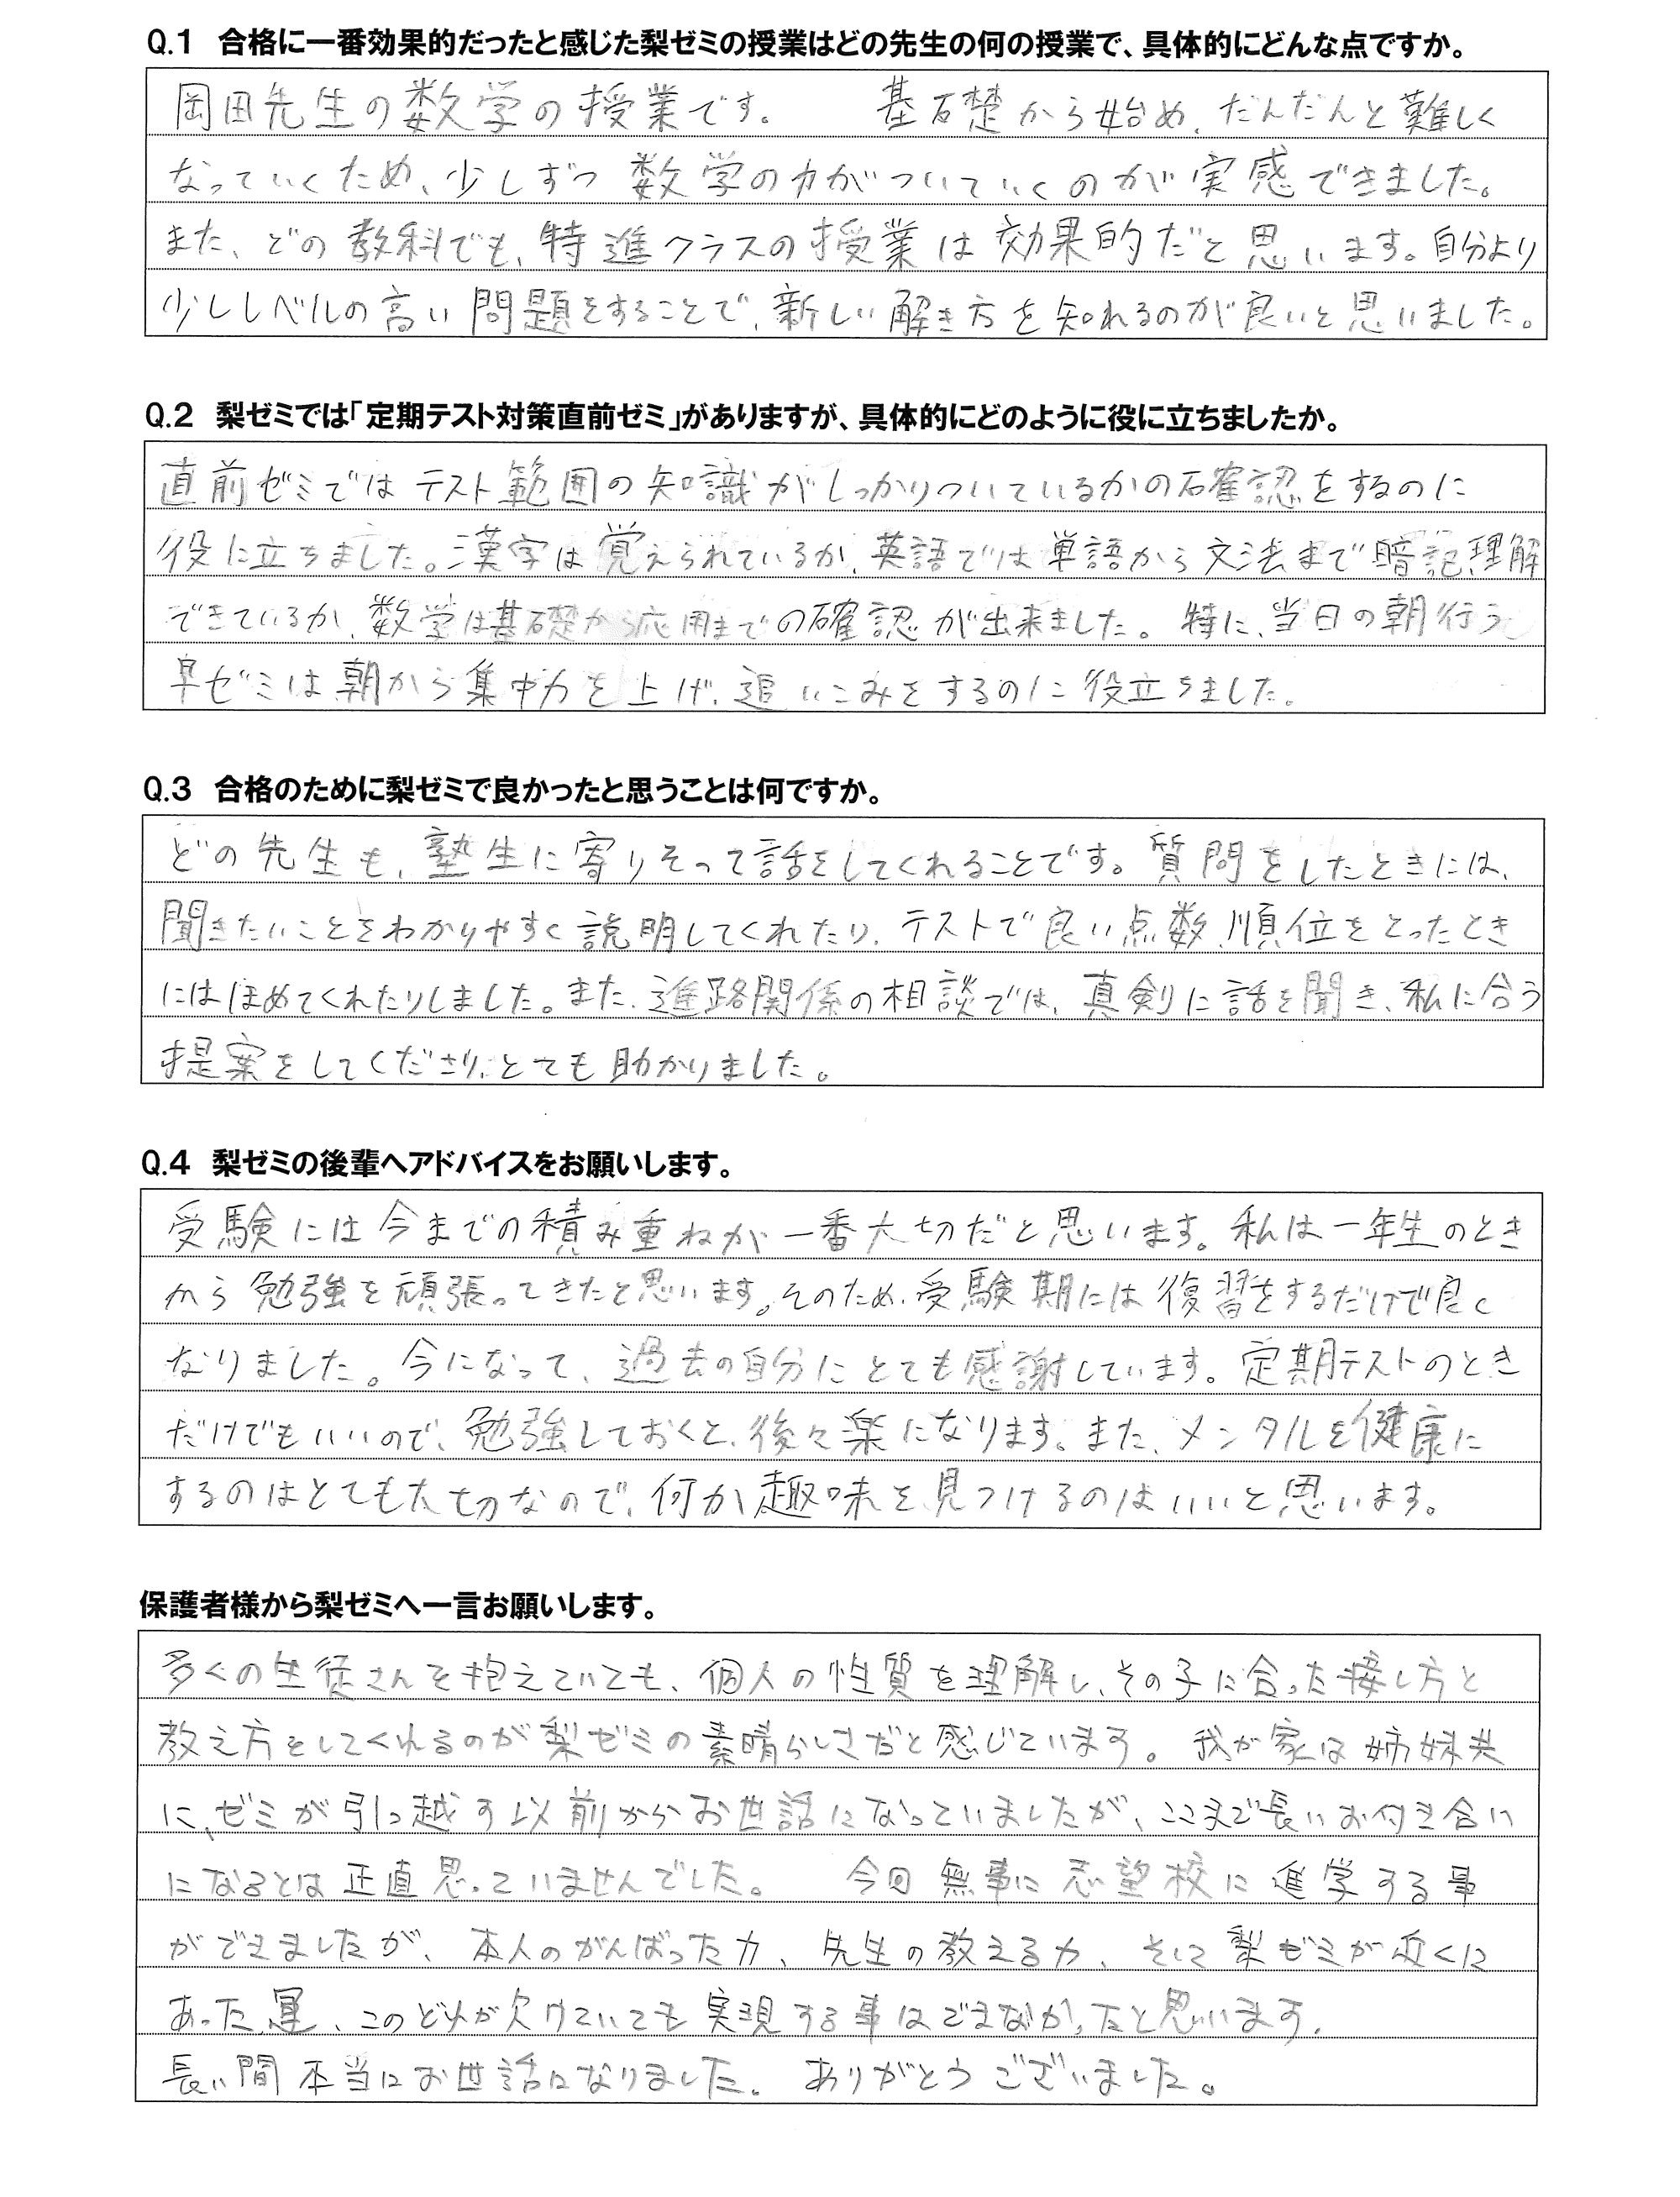 Q.1 合格に一番効果的だったと感じた梨ゼミの授業はどの先生の何の授業で、具体的にどんな点ですか。
岡田先生の数学の授業です。 基礎から始め、だんだんと難しく
なっていくため、少しずつ数学の力がついていくのが実感できました。
また、どの教科でも、特進クラスの授業は効果的だと思います。自分より
少しレベルの高い問題をすることで、新しい解き方を知れるのが良いと思いました。
Q.2 梨ゼミでは「定期テスト対策直前ゼミ」がありますが、具体的にどのように役に立ちましたか。
直前ゼミではテスト範囲の知識がしっかりついているかの確認をするのに
役に立ちました。漢字は覚えられているか、英語では単語から文法まで暗記、理解
できているか、数学は基礎から応用までの確認が出来ました。特に、当日の朝行う
早ゼミは朝から集中力を上げ、追いこみをするのに役立ちました。
Q.3 合格のために梨ゼミで良かったと思うことは何ですか。
どの先生も、塾生に寄りそって話をしてくれることです。質問をしたときには、
聞きたいことをわかりやすく説明してくれたり、テストで良い点数、順位をとったとき
にはほめてくれたりしました。また、進路関係の相談では、真剣に話を聞き、私に合う
提案をしてくださり、とても助かりました。
Q.4 梨ゼミの後輩へアドバイスをお願いします。
受験には今までの積み重ねが一番大切だと思います。私は一年生のとき
から勉強を頑張ってきたと思います。そのため、受験期には復習をするだけで良く
なりました。今になって、過去の自分にとても感謝しています。定期テストのとき
だけでもいいので、勉強しておくと、後々楽になります。また、メンタルを健康に
するのはとても大切なので、何か趣味を見つけるのはいいと思います。
保護者様から梨ゼミへ一言お願いします。
多くの生徒さんを抱えていても、個人の性質を理解し、その子に合った接し方と
教え方をしてくれるのが梨ゼミの素晴らしさだと感じています。我が家は姉妹共
に、ゼミが引っ越す以前からお世話になっていましたが、ここまで長いお付き合い
になるとは正直思っていませんでした。 今回無事に志望校に進学する事
ができましたが、本人のがんばった力、先生の教える力、そして梨ゼミが近くに
あった運、このどれが欠けていても実現する事はできなかったと思います。
長い間本当にお世話になりました。ありがとうございました。